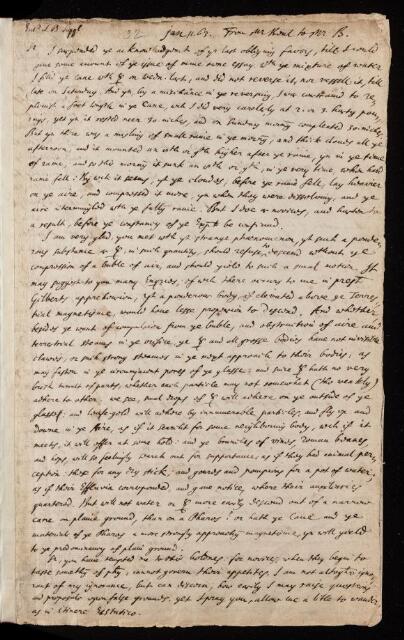 32 Jan. 1. 63. From Mr Beal to Mr B.
Sr I suspended ye acknowledgment of yr last obliging favors, till I could
give some account of ye issue of mine owne essay, wth ye mixture of water
I fild ye cane wth ☿ on
late on Saturday. And yn, by a mischance in ye reversing, I was constraind to re-
plenish a foot length in ye Cane, wch I did very carefully at 2. or 3. hasty pou-
rings, yet yn it rested neer 30 niches, and on Sunday morning compleated 30 niches.
But yn there was a misling of small raine in ye morning, and thick clouds all ye
afternoon, and it mounted an wth or higher after ye raine, yn in ye time
of raine, and so this morning it sunk an wth or in ye very time, when hard
raine fell. By wch it seems, yt ye clouds, before ye raine fell, lay heavier
on ye aire, and compressed it more, yn when they were dissolving, and ye
aire intermingled wth ye falling raine. But I doe a novices, and hasten to
a result, before ye constancy of ye Expt be confirmd.
I am very glad, you met with yt strange phaenomenon, yt such a ponde-
rous substance as ☿, in such quantity, should refuse to descend without ye
compression of a buble of air, and should yield to such a small motion. It
may suggest to you many Enquiries, of wch there occurs to me in prest
Gilberts apprehension, yt a ponderous body, if elevated above ye Terres-
trial magnetisme, would have lesse propension to descend. And whether
besides ye want of compulsion from ye buble, and obstruction of aire and
terrestrial steams in ye orifice, ye ☿ and all grosse bodies have not invisible
clawes, or such strong steames in ye next approach to their bodies, as
may fasten in ye circumjacent pores of ye glasse; and sure ☿ hath no very
brisk tumult of parts, whether each particle may not somewhat (tho weakly)
adhere to other. we see, small drops of ☿ will adhere on ye outside of ye
glasse: and leafe gold will adhere by innumerable particles, and fly up and
downe in ye Aire, as if it searcht for some neighbouring body, wch if it
meets, it will offer at some hold: and ye tendrils of vines, Roman beanes,
and hops, will so feelingly search out for supportance, as if they had animal per-
ception: these for any dry stick, and gourds and pompions for a pot of water,
as if their Effluvia corresponded, and gave notice, where their auxiliaries
quartered. But will not water or ☿ more easily descend out of a narrow
cane on plaine ground, than on a Pharos? or hath ye Cane and ye
materials of ye Pharos a more strongly approaching magnetisme, yn will yield
to ye predominancy of plain ground.
Sr, you have tempted me to this boldnes: for novices, when they begin to
taste something of phy, cannot govern their appetites. I am not altogether igno-
rant of my ignorance, but can discern, how easily I may raise questions
and proposals upon false grounds, yet I pray you, allow me a litle to wander,
as in Itinere Extatico.